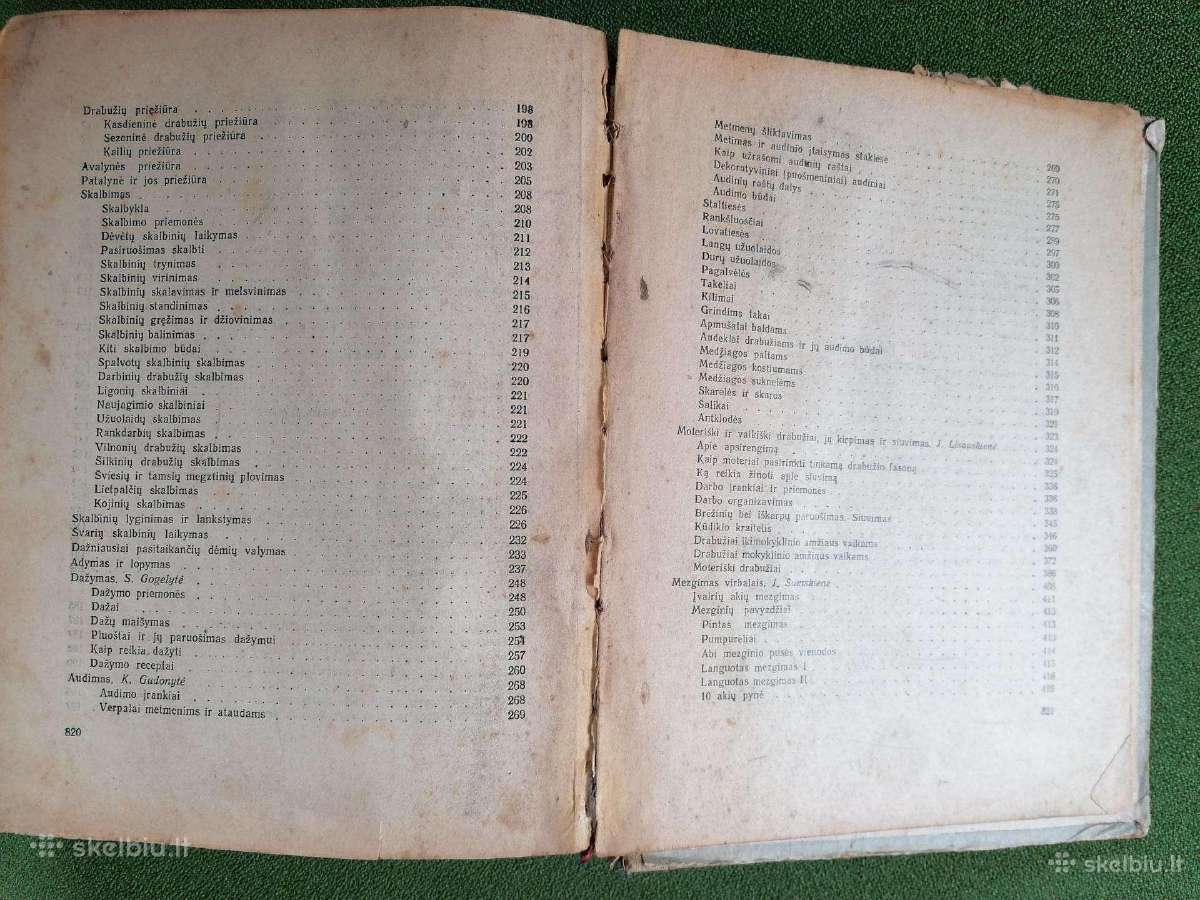 Drabužių priežiūra 198
Kasdieninė drabužių priežiūra 198
Sezoninė drabužių priežiūra 200
Kailių priežiūra 202
Avalynės priežiūra 203
Patalynė ir jos priežiūra 205
Skalbimas 208
Skalbykla 208
Skalbimo priemonės 210
Dėvėtų skalbinių laikymas 211
Pasiruošimas skalbti 212
Skalbinių trynimas 213
Skalbinių virinimas 214
Skalbinių skalavimas ir melsvinimas 215
Skalbinių standinimas 216
Skalbinių gręžimas ir džiovinimas 217
Skalbinių balinimas 217
Kiti skalbimo būdai 219
Spalvotų skalbinių skalbimas 220
Darbinių drabužių skalbimas 220
Ligonių skalbiniai 221
Naujagimio skalbiniai 221
Užuolaidų skalbimas 221
Rankdarbių skalbimas 222
Vilnonių drabužių skalbimas 222
Šilkinių drabužių skalbimas 224
Šviesių ir tamsių megztinių plovimas 224
Lietpalčių skalbimas 225
Kojinių skalbimas 226
Skalbinių lyginimas ir lankstymas 226
Švarių skalbinių laikymas 232
Dažniausiai pasitaikančių dėmių valymas 233
Adymas ir lopymas 237
Dažymas, S. Gogelytė 248
Dažymo priemonės 248
Dažai 250
Dažų maišymas 253
Pluoštai ir jų paruošimas dažymui 254
Kaip reikia dažyti 257
Dažymo receptai 260
Audimas, K. Gudonytė 268
Audimo įrankiai 268
Verpalai metmenims ir ataudams 269
820
Metmenų šliktavimas 269
Metimas ir audinio įtaisymas staklėse 270
Kaip užrašomi audinių raštai 271
Dekoratyviniai (puošmeniniai) audiniai 275
Audinių raštų dalys 275
Audimo būdai 277
Staltiesės 289
Rankšluosčiai 297
Lovatiesės 300
Langų užuolaidos 302
Durų užuolaidos 305
Pagalvėlės 306
Takeliai 308
Kilimai 310
Grindims takai 311
Apmušalai baldams 312
Audeklai drabužiams ir jų audimo būdai 314
Medžiagos paltams 315
Medžiagos kostiumams 316
Medžiagos suknelėms 317
Skarelės ir skaros 319
Šalikai 321
Antklodės 323
Moteriški ir vaikiški drabužiai, jų kirpimas ir siuvimas, J. 324
Apie apsirengimą
Kaip moteriai pasirinkti tinkamą drabužio fasoną
Ką reikia žinoti apie siuvimą
Darbo įrankiai ir priemonės
Darbo organizavimas
Brėžinių bei iškarpų paruošimas. Siuvimas
Kūdikio kraitelis
Drabužiai ikimokyklinio amžiaus vaikams
Drabužiai mokyklinio amžiaus vaikams
Moteriški drabužiai
Mezgimas virbalais, J.
Įvairių akių mezgimas
Mezginių pavyzdžiai
Pintas mezgimas
Pumpurėliai
Abi mezginio pusės vienodos
Languotas mezgimas I
Languotas mezgimas II
10 akių pynė
821
skelbiu.lt
skelbiu.lt